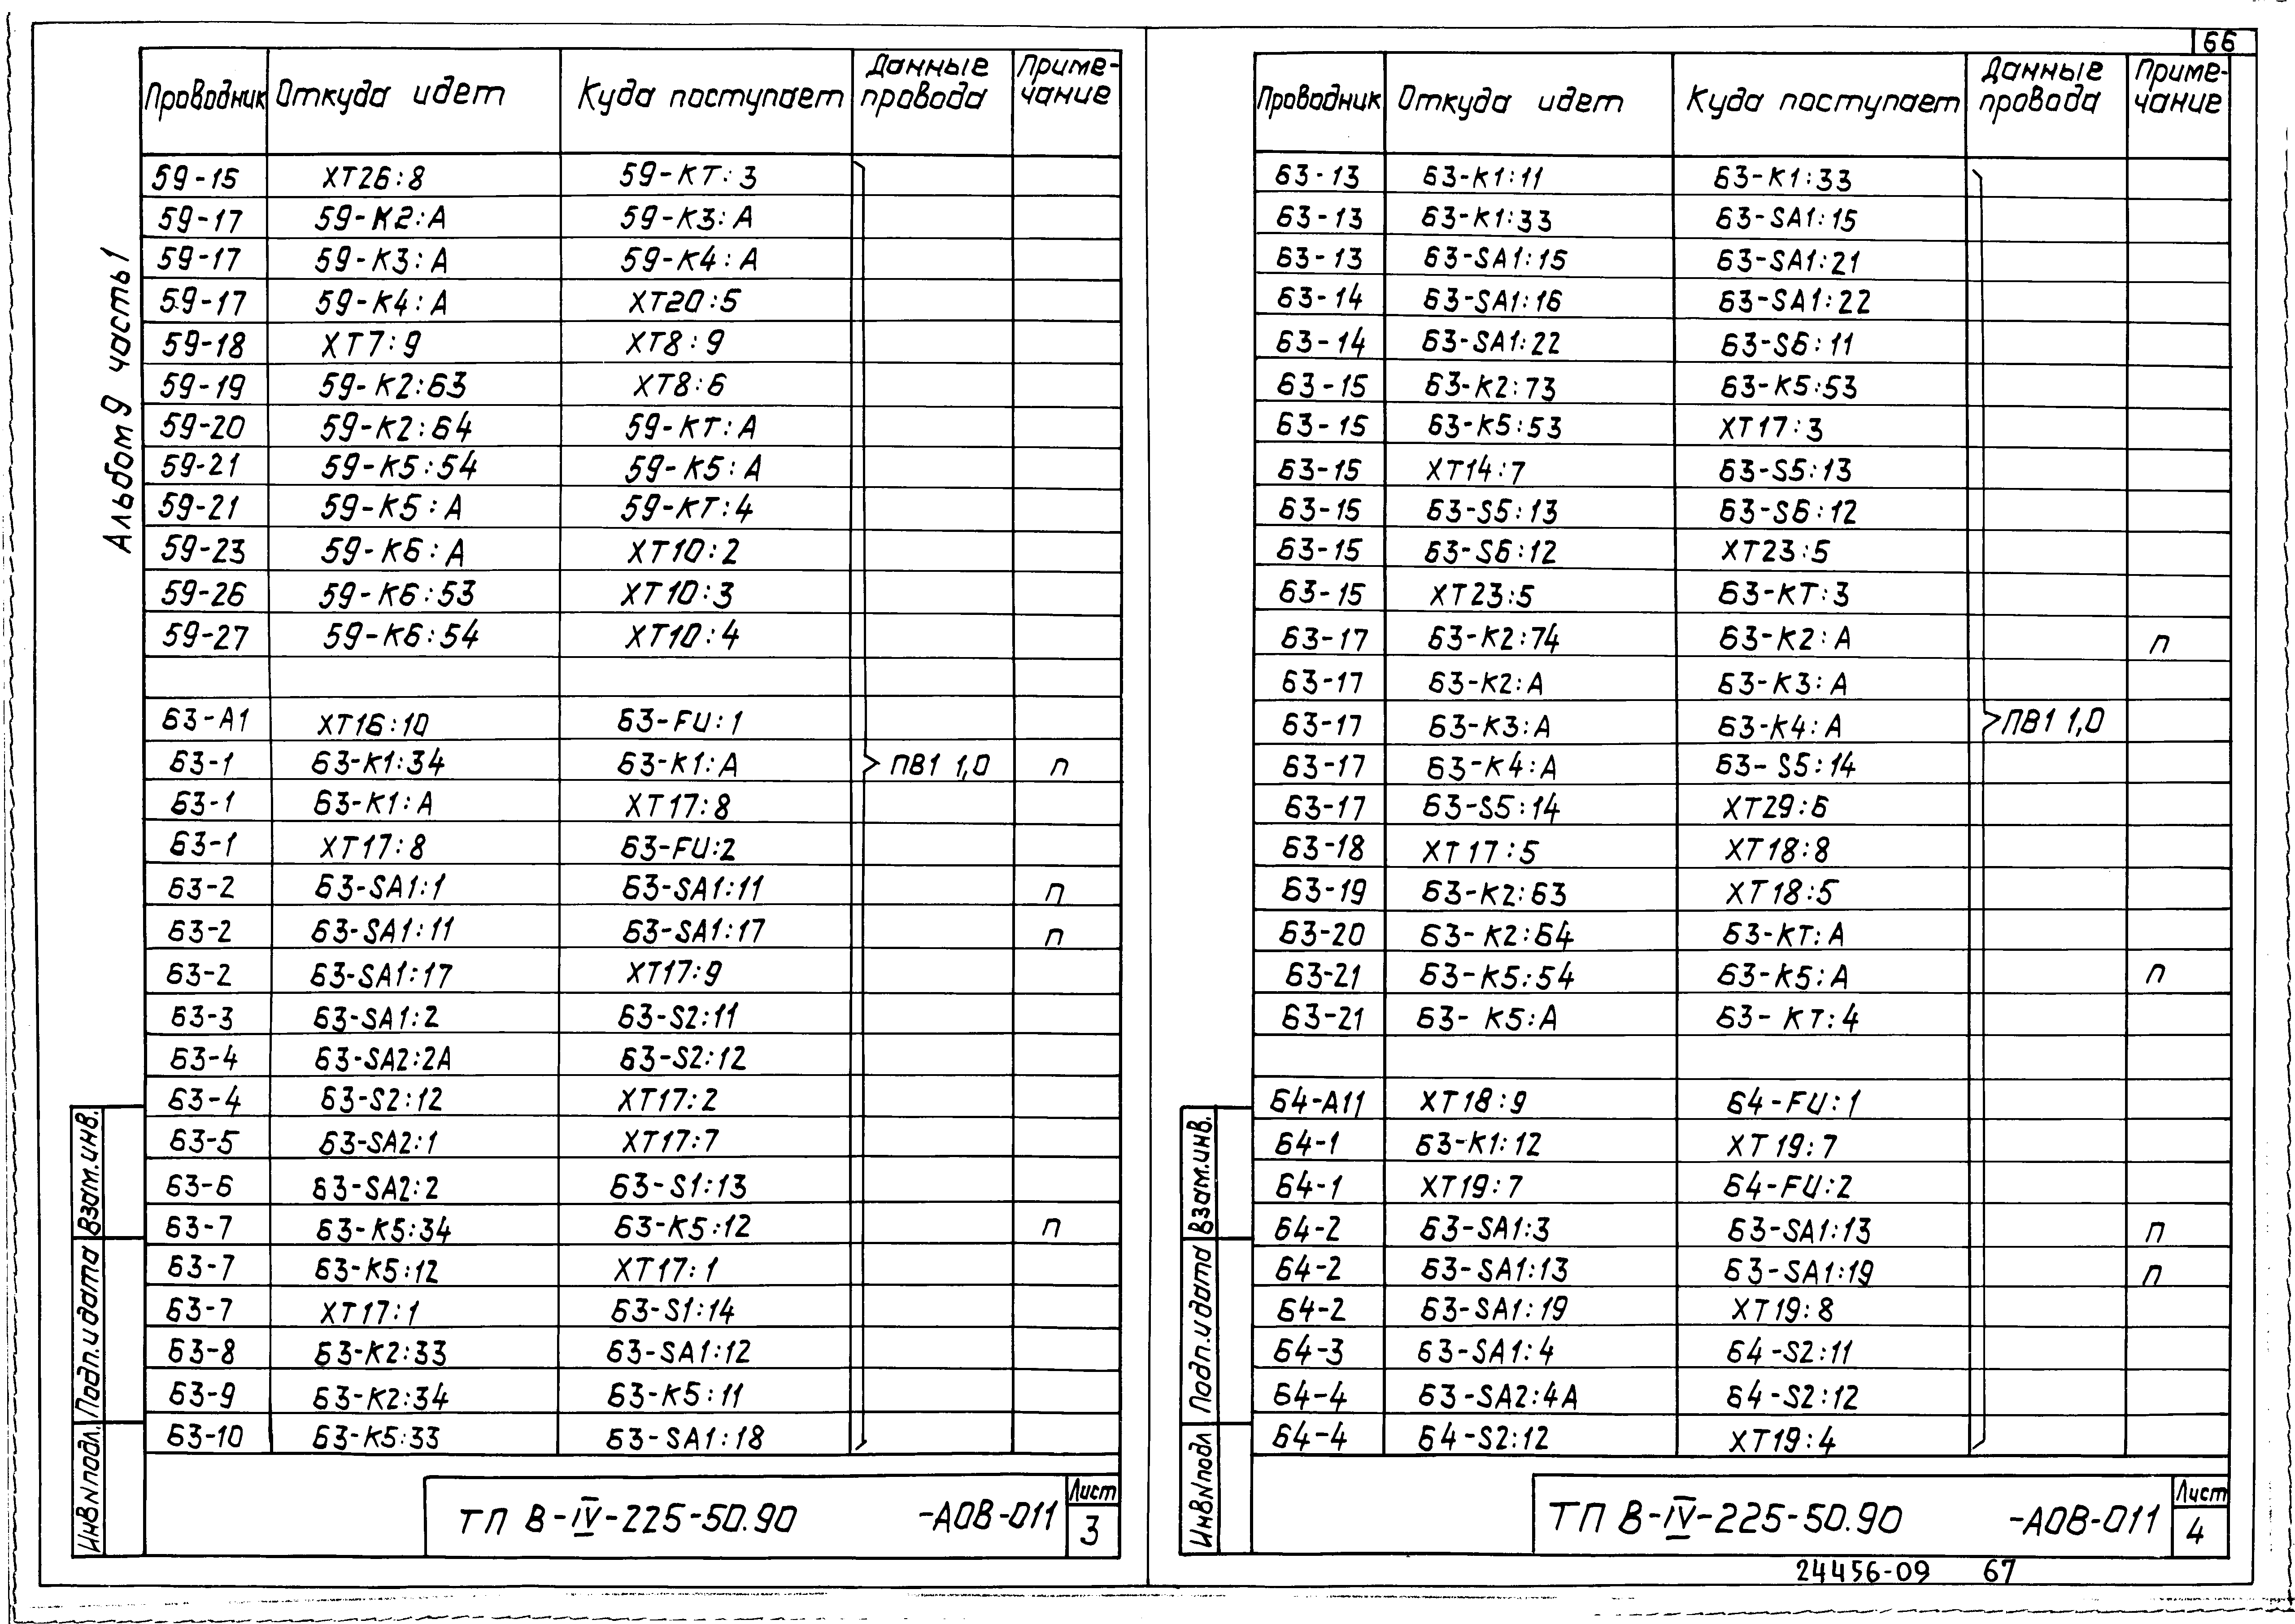 66
Альбом 9 часть 1
Проводник Откуда идет Куда поступает Данные провода Примечание
59-15 XT26:8 59-KT:3
59-17 59-K2:A 59-K3:A
59-17 59-K3:A 59-K4:A
59-17 59-K4:A XT20:5
59-18 XT7:9 XT8:9
59-19 59-K2:63 XT8:6
59-20 59-K2:64 59-KT:A
59-21 59-K5:54 59-K5:A
59-21 59-K5:A 59-KT:4
59-23 59-K6:A XT10:2
59-26 59-K6:53 XT10:3
59-27 59-K6:54 XT10:4
63-A1 XT16:10 63-FU:1
63-1 63-K1:34 63-K1:A ПВ1 1,0 п
63-1 63-K1:A XT17:8
63-1 XT17:8 63-FU:2
63-2 63-SA1:1 63-SA1:11 п
63-2 63-SA1:11 63-SA1:17 п
63-2 63-SA1:17 XT17:9
63-3 63-SA1:2 63-S2:11
63-4 63-SA2:2A 63-S2:12
63-4 63-S2:12 XT17:2
63-5 63-SA2:1 XT17:7
63-6 63-SA2:2 63-S1:13
63-7 63-K5:34 63-K5:12 п
63-7 63-K5:12 XT17:1
63-7 XT17:1 63-S1:14
63-8 63-K2:33 63-SA1:12
63-9 63-K2:34 63-K5:11
63-10 63-K5:33 63-SA1:18
Взам.инв.
Подп.и дата
Инв N подл.
ТП В-IV-225-50.90 -АОВ-011 Лист 3
Проводник Откуда идет Куда поступает Данные провода Примечание
63-13 63-K1:11 63-K1:33
63-13 63-K1:33 63-SA1:15
63-13 63-SA1:15 63-SA1:21
63-14 63-SA1:16 63-SA1:22
63-14 63-SA1:22 63-S6:11
63-15 63-K2:73 63-K5:53
63-15 63-K5:53 XT17:3
63-15 XT14:7 63-S5:13
63-15 63-S5:13 63-S6:12
63-15 63-S6:12 XT23:5
63-15 XT23:5 63-KT:3
63-17 63-K2:74 63-K2:A п
63-17 63-K2:A 63-K3:A
63-17 63-K3:A 63-K4:A ПВ1 1,0
63-17 63-K4:A 63-S5:14
63-17 63-S5:14 XT29:6
63-18 XT17:5 XT18:8
63-19 63-K2:63 XT18:5
63-20 63-K2:64 63-KT:A
63-21 63-K5:54 63-K5:A п
63-21 63-K5:A 63-KT:4
64-A11 XT18:9 64-FU:1
64-1 63-K1:12 XT19:7
64-1 XT19:7 64-FU:2
64-2 63-SA1:3 63-SA1:13 п
64-2 63-SA1:13 63-SA1:19 п
64-2 63-SA1:19 XT19:8
64-3 63-SA1:4 64-S2:11
64-4 63-SA2:4A 64-S2:12
64-4 64-S2:12 XT19:4
Взам.инв.
Подп.и дата
Инв N подл
ТП В-IV-225-50.90 -АОВ-011 Лист 4
24456-09 67